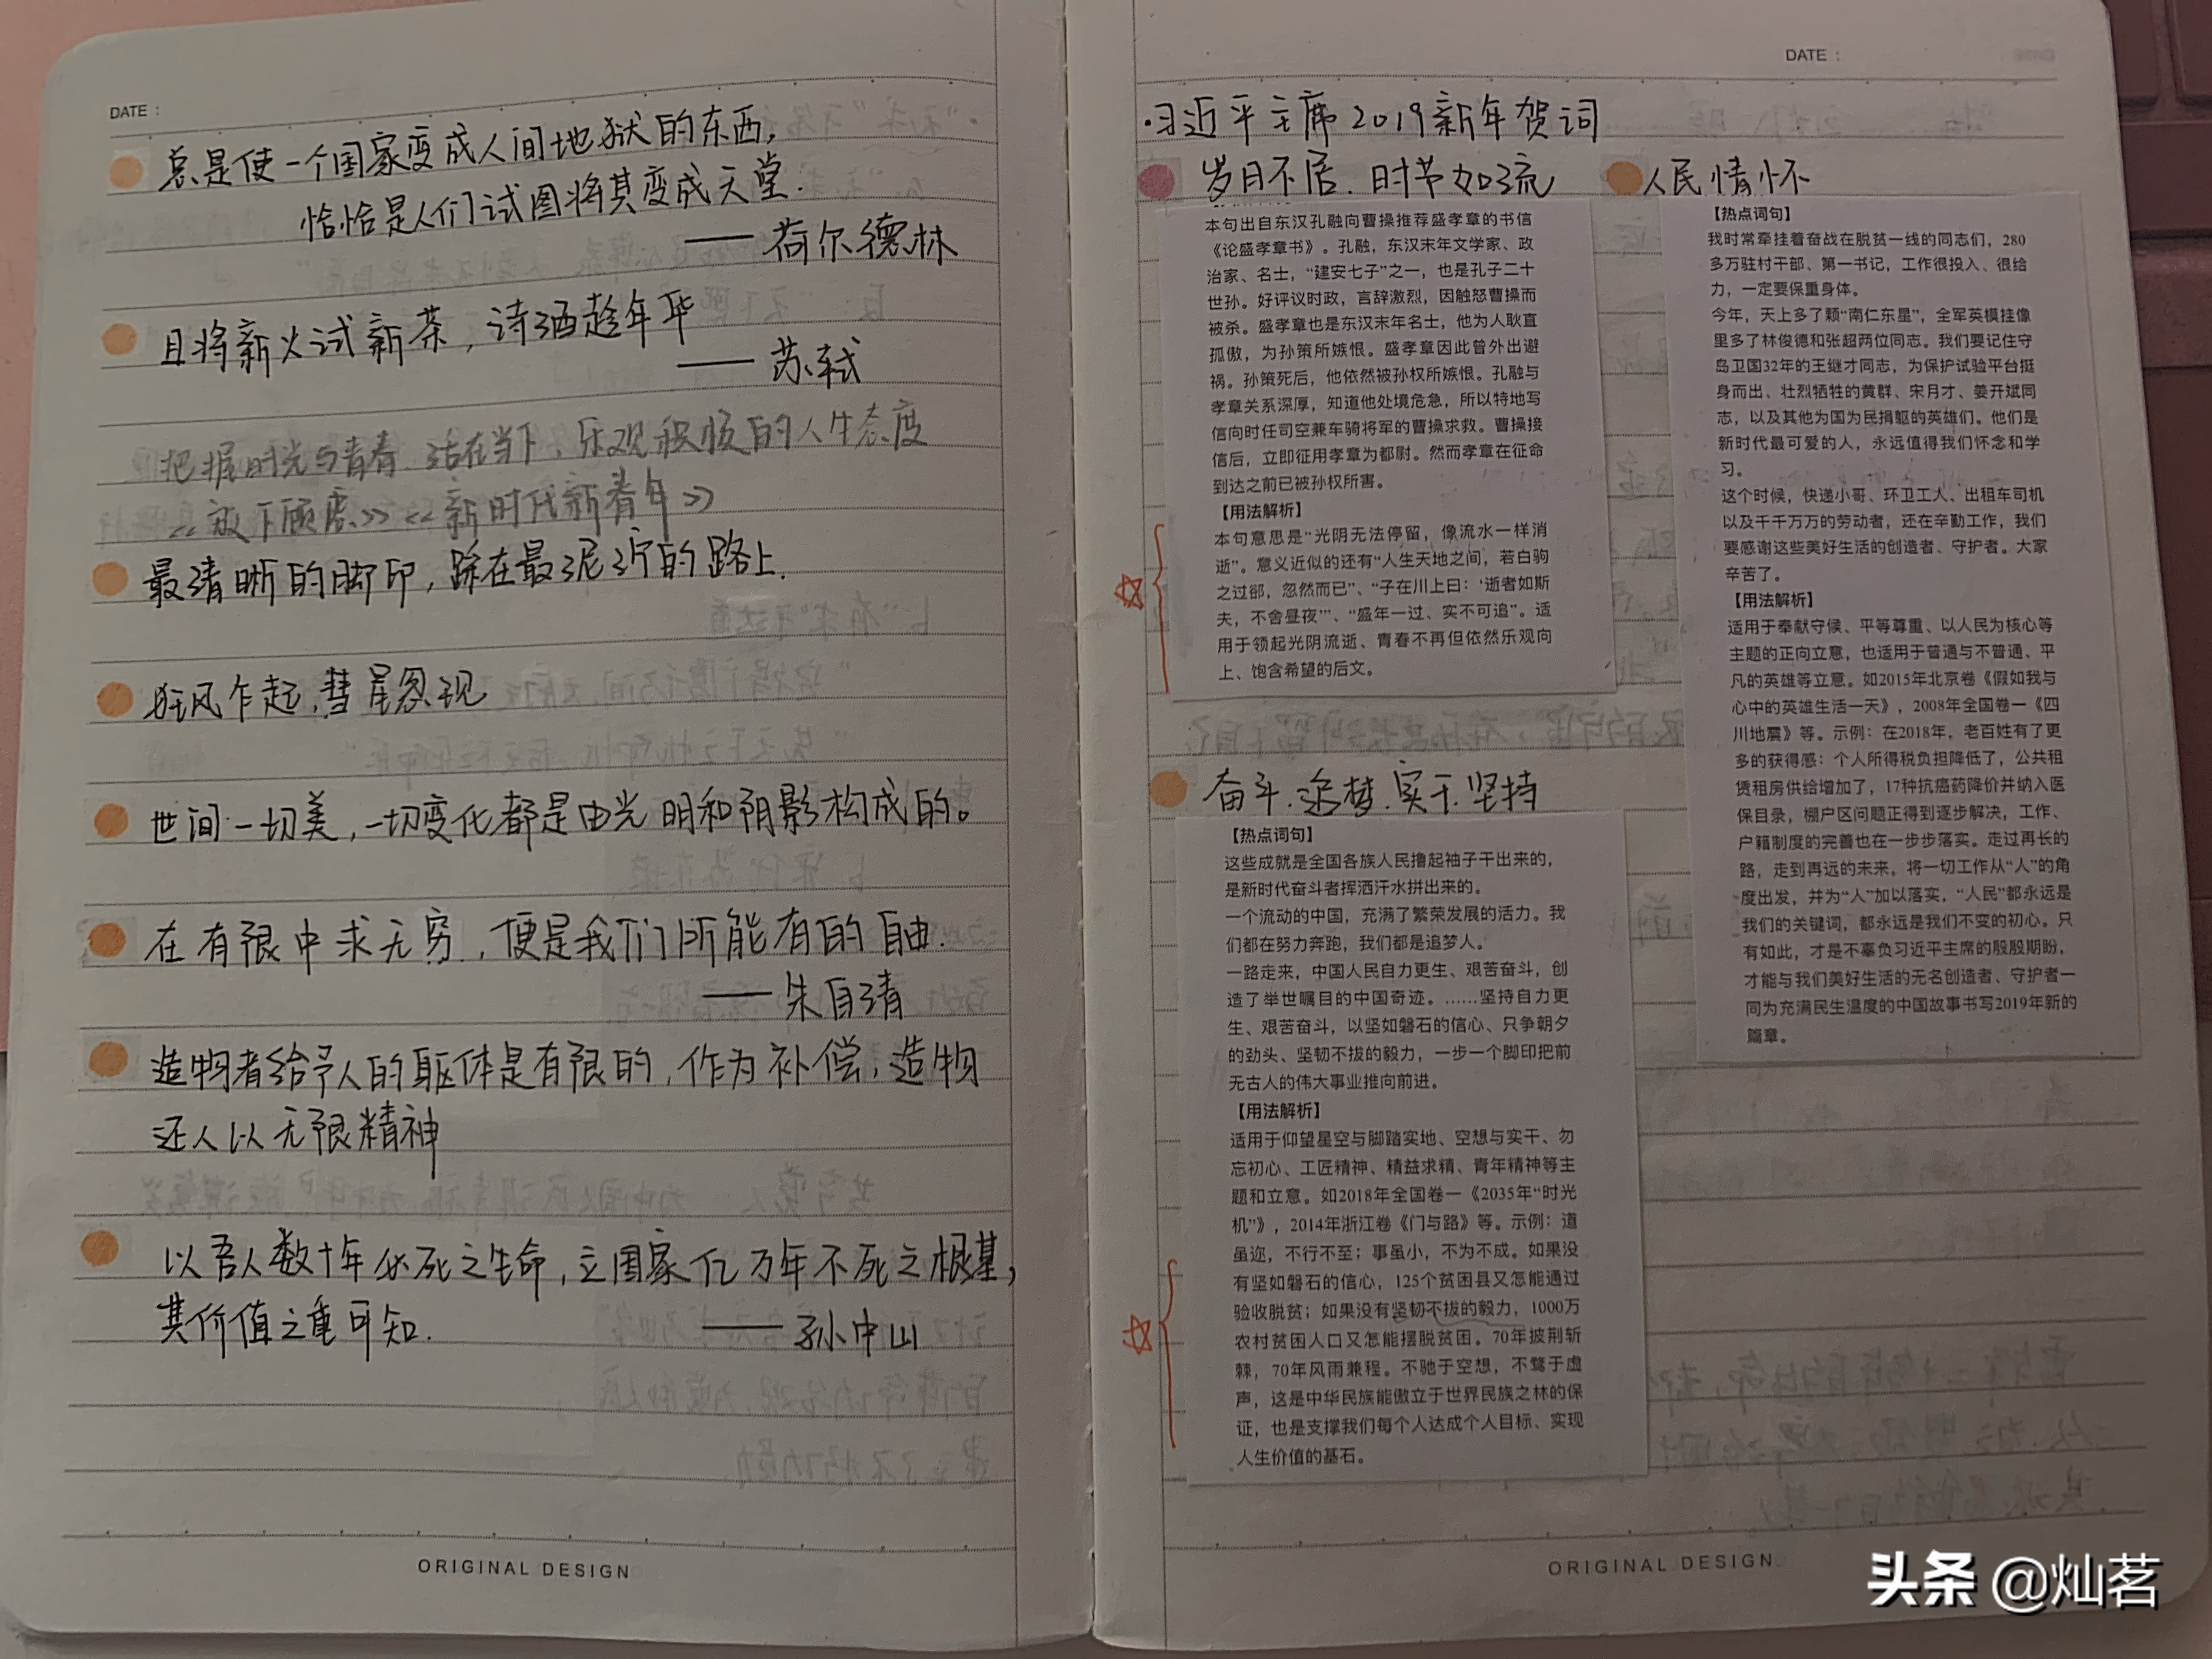 DATE：
总是使一个国家变成人间地狱的东西，
恰恰是人们试图将其变成天堂.
——荷尔德林
且将新火试新茶，诗酒趁年华
——苏轼
把握时光与青春.活在当下、乐观积极的人生态度
《放下顾虑》《新时代新青年》
最清晰的脚印，踩在最泥泞的路上.
狂风乍起,彗星忽现
世间一切美，一切变化都是由光明和阴影构成的。
在有限中求无穷，便是我们所能有的自由.
——朱自清
造物者给予人的躯体是有限的，作为补偿，造物
还人以无限精神
以吾人数十年必死之生命，立国家亿万年不死之根基，
其价值之重可知.
——孙中山
ORIGINAL DESIGN
DATE：
·习近平主席2019新年贺词
岁月不居.时节如流
本句出自东汉孔融向曹操推荐盛孝章的书信
《论盛孝章书》。孔融，东汉末年文学家、政
治家、名士，“建安七子”之一，也是孔子二十
世孙。好评议时政，言辞激烈，因触怒曹操而
被杀。盛孝章也是东汉末年名士，他为人耿直
孤傲，为孙策所嫉恨。盛孝章因此曾外出避
祸。孙策死后，他依然被孙权所嫉恨。孔融与
孝章关系深厚，知道他处境危急，所以特地写
信向时任司空兼车骑将军的曹操求救。曹操接
信后，立即征用孝章为都尉。然而孝章在征命
到达之前已被孙权所害。
【用法解析】
本句意思是“光阴无法停留，像流水一样消
逝”。意义近似的还有“人生天地之间，若白驹
之过郤，忽然而已”、“子在川上曰：‘逝者如斯
夫，不舍昼夜’”、“盛年一过、实不可追”。适
用于领起光阴流逝、青春不再但依然乐观向
上、饱含希望的后文。
奋斗.追梦.实干.坚持
【热点词句】
这些成就是全国各族人民撸起袖子干出来的，
是新时代奋斗者挥洒汗水拼出来的。
一个流动的中国，充满了繁荣发展的活力。我
们都在努力奔跑，我们都是追梦人。
一路走来，中国人民自力更生、艰苦奋斗，创
造了举世瞩目的中国奇迹。……坚持自力更
生、艰苦奋斗，以坚如磐石的信心、只争朝夕
的劲头、坚韧不拔的毅力，一步一个脚印把前
无古人的伟大事业推向前进。
【用法解析】
适用于仰望星空与脚踏实地、空想与实干、勿
忘初心、工匠精神、精益求精、青年精神等主
题和立意。如2018年全国卷一《2035年“时光
机”》，2014年浙江卷《门与路》等。示例：道
虽迩，不行不至；事虽小，不为不成。如果没
有坚如磐石的信心，125个贫困县又怎能通过
验收脱贫；如果没有坚韧不拔的毅力，1000万
农村贫困人口又怎能摆脱贫困。70年披荆斩
棘，70年风雨兼程。不驰于空想，不骛于虚
声，这是中华民族能傲立于世界民族之林的保
证，也是支撑我们每个人达成个人目标、实现
人生价值的基石。
人民情怀
【热点词句】
我时常牵挂着奋战在脱贫一线的同志们，280
多万驻村干部、第一书记，工作很投入、很给
力，一定要保重身体。
今年，天上多了颗“南仁东星”，全军英模挂像
里多了林俊德和张超两位同志。我们要记住守
岛卫国32年的王继才同志，为保护试验平台挺
身而出、壮烈牺牲的黄群、宋月才、姜开斌同
志，以及其他为国为民捐躯的英雄们。他们是
新时代最可爱的人，永远值得我们怀念和学
习。
这个时候，快递小哥、环卫工人、出租车司机
以及千千万万的劳动者，还在辛勤工作，我们
要感谢这些美好生活的创造者、守护者。大家
辛苦了。
【用法解析】
适用于奉献守候、平等尊重、以人民为核心等
主题的正向立意，也适用于普通与不普通、平
凡的英雄等立意。如2015年北京卷《假如我与
心中的英雄生活一天》，2008年全国卷一《四
川地震》等。示例：在2018年，老百姓有了更
多的获得感：个人所得税负担降低了，公共租
赁租房供给增加了，17种抗癌药降价并纳入医
保目录，棚户区问题正得到逐步解决，工作、
户籍制度的完善也在一步步落实。走过再长的
路，走到再远的未来，将一切工作从“人”的角
度出发，并为“人”加以落实，“人民”都永远是
我们的关键词，都永远是我们不变的初心。只
有如此，才是不辜负习近平主席的殷殷期盼，
才能与我们美好生活的无名创造者、守护者一
同为充满民生温度的中国故事书写2019年新的
篇章。
ORIGINAL DESIGN
头条 @灿茗